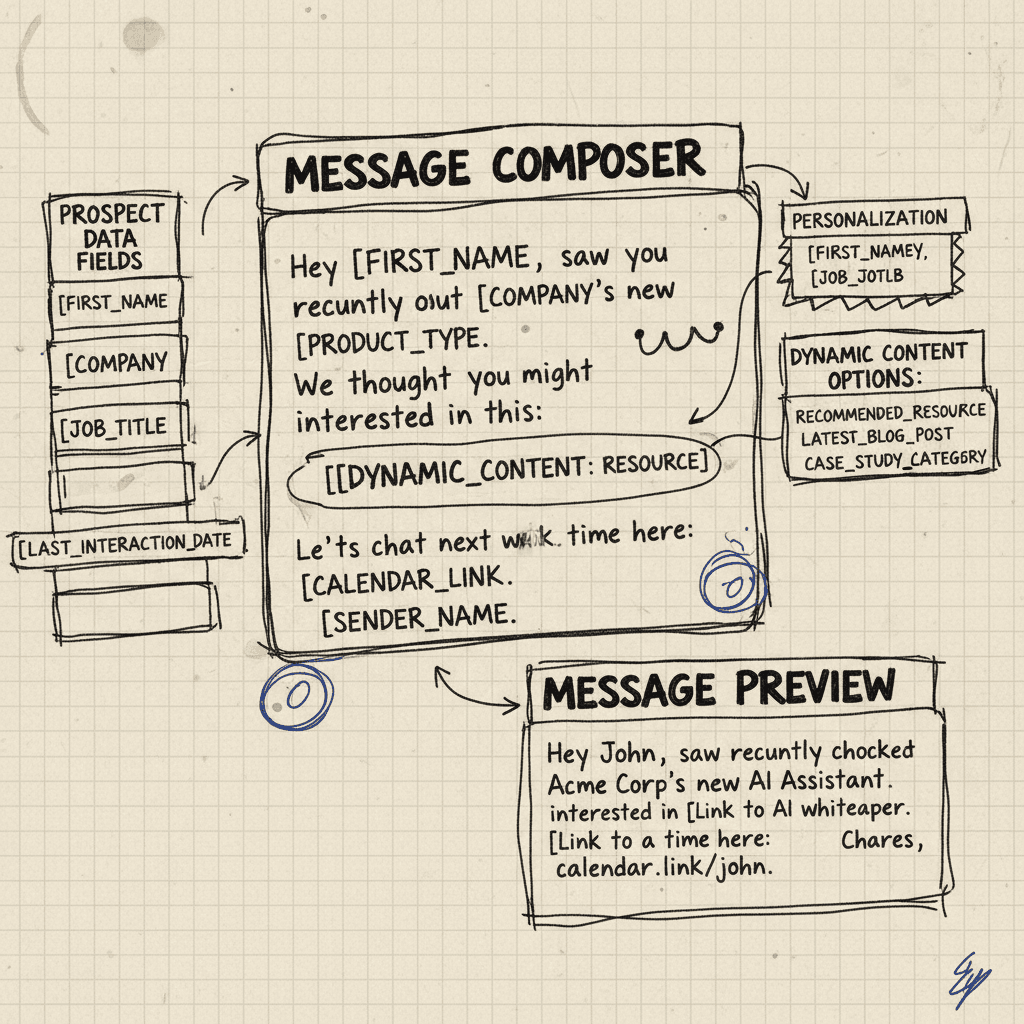 MESSAGE COMPOSER
PROSPECT
DATA
FIELDS
[FIRST_NAME
[COMPANY
[JOB_TITLE
[LAST_INTERACTION_DATE
Hey [FIRST_NAME, saw you
recuntly out [COMPANY's new
[PRODUCT_TYPE.
We thought you might
interested in this:
[[DYNAMIC_CONTENT: RESOURCE]
Le'ts chat next time here:
[CALENDAR_LINK.
[SENDER_NAME.
PERSONALIZATION
[FIRST_NAMEY,
[JOB_JOTLB
DYNAMIC CONTENT
OPTIONS:
RECOMMENDED_RESOURCE
LATEST_BLOG_POST
CASE_STUDY_CATEGGRY
MESSAGE PREVIEW
Hey John, saw recuntly chocked
Acme Corp's new AI Assistant.
interested in [Link to AI whiteaper.
[Link to a time here: Chares,
calendar.link/john.